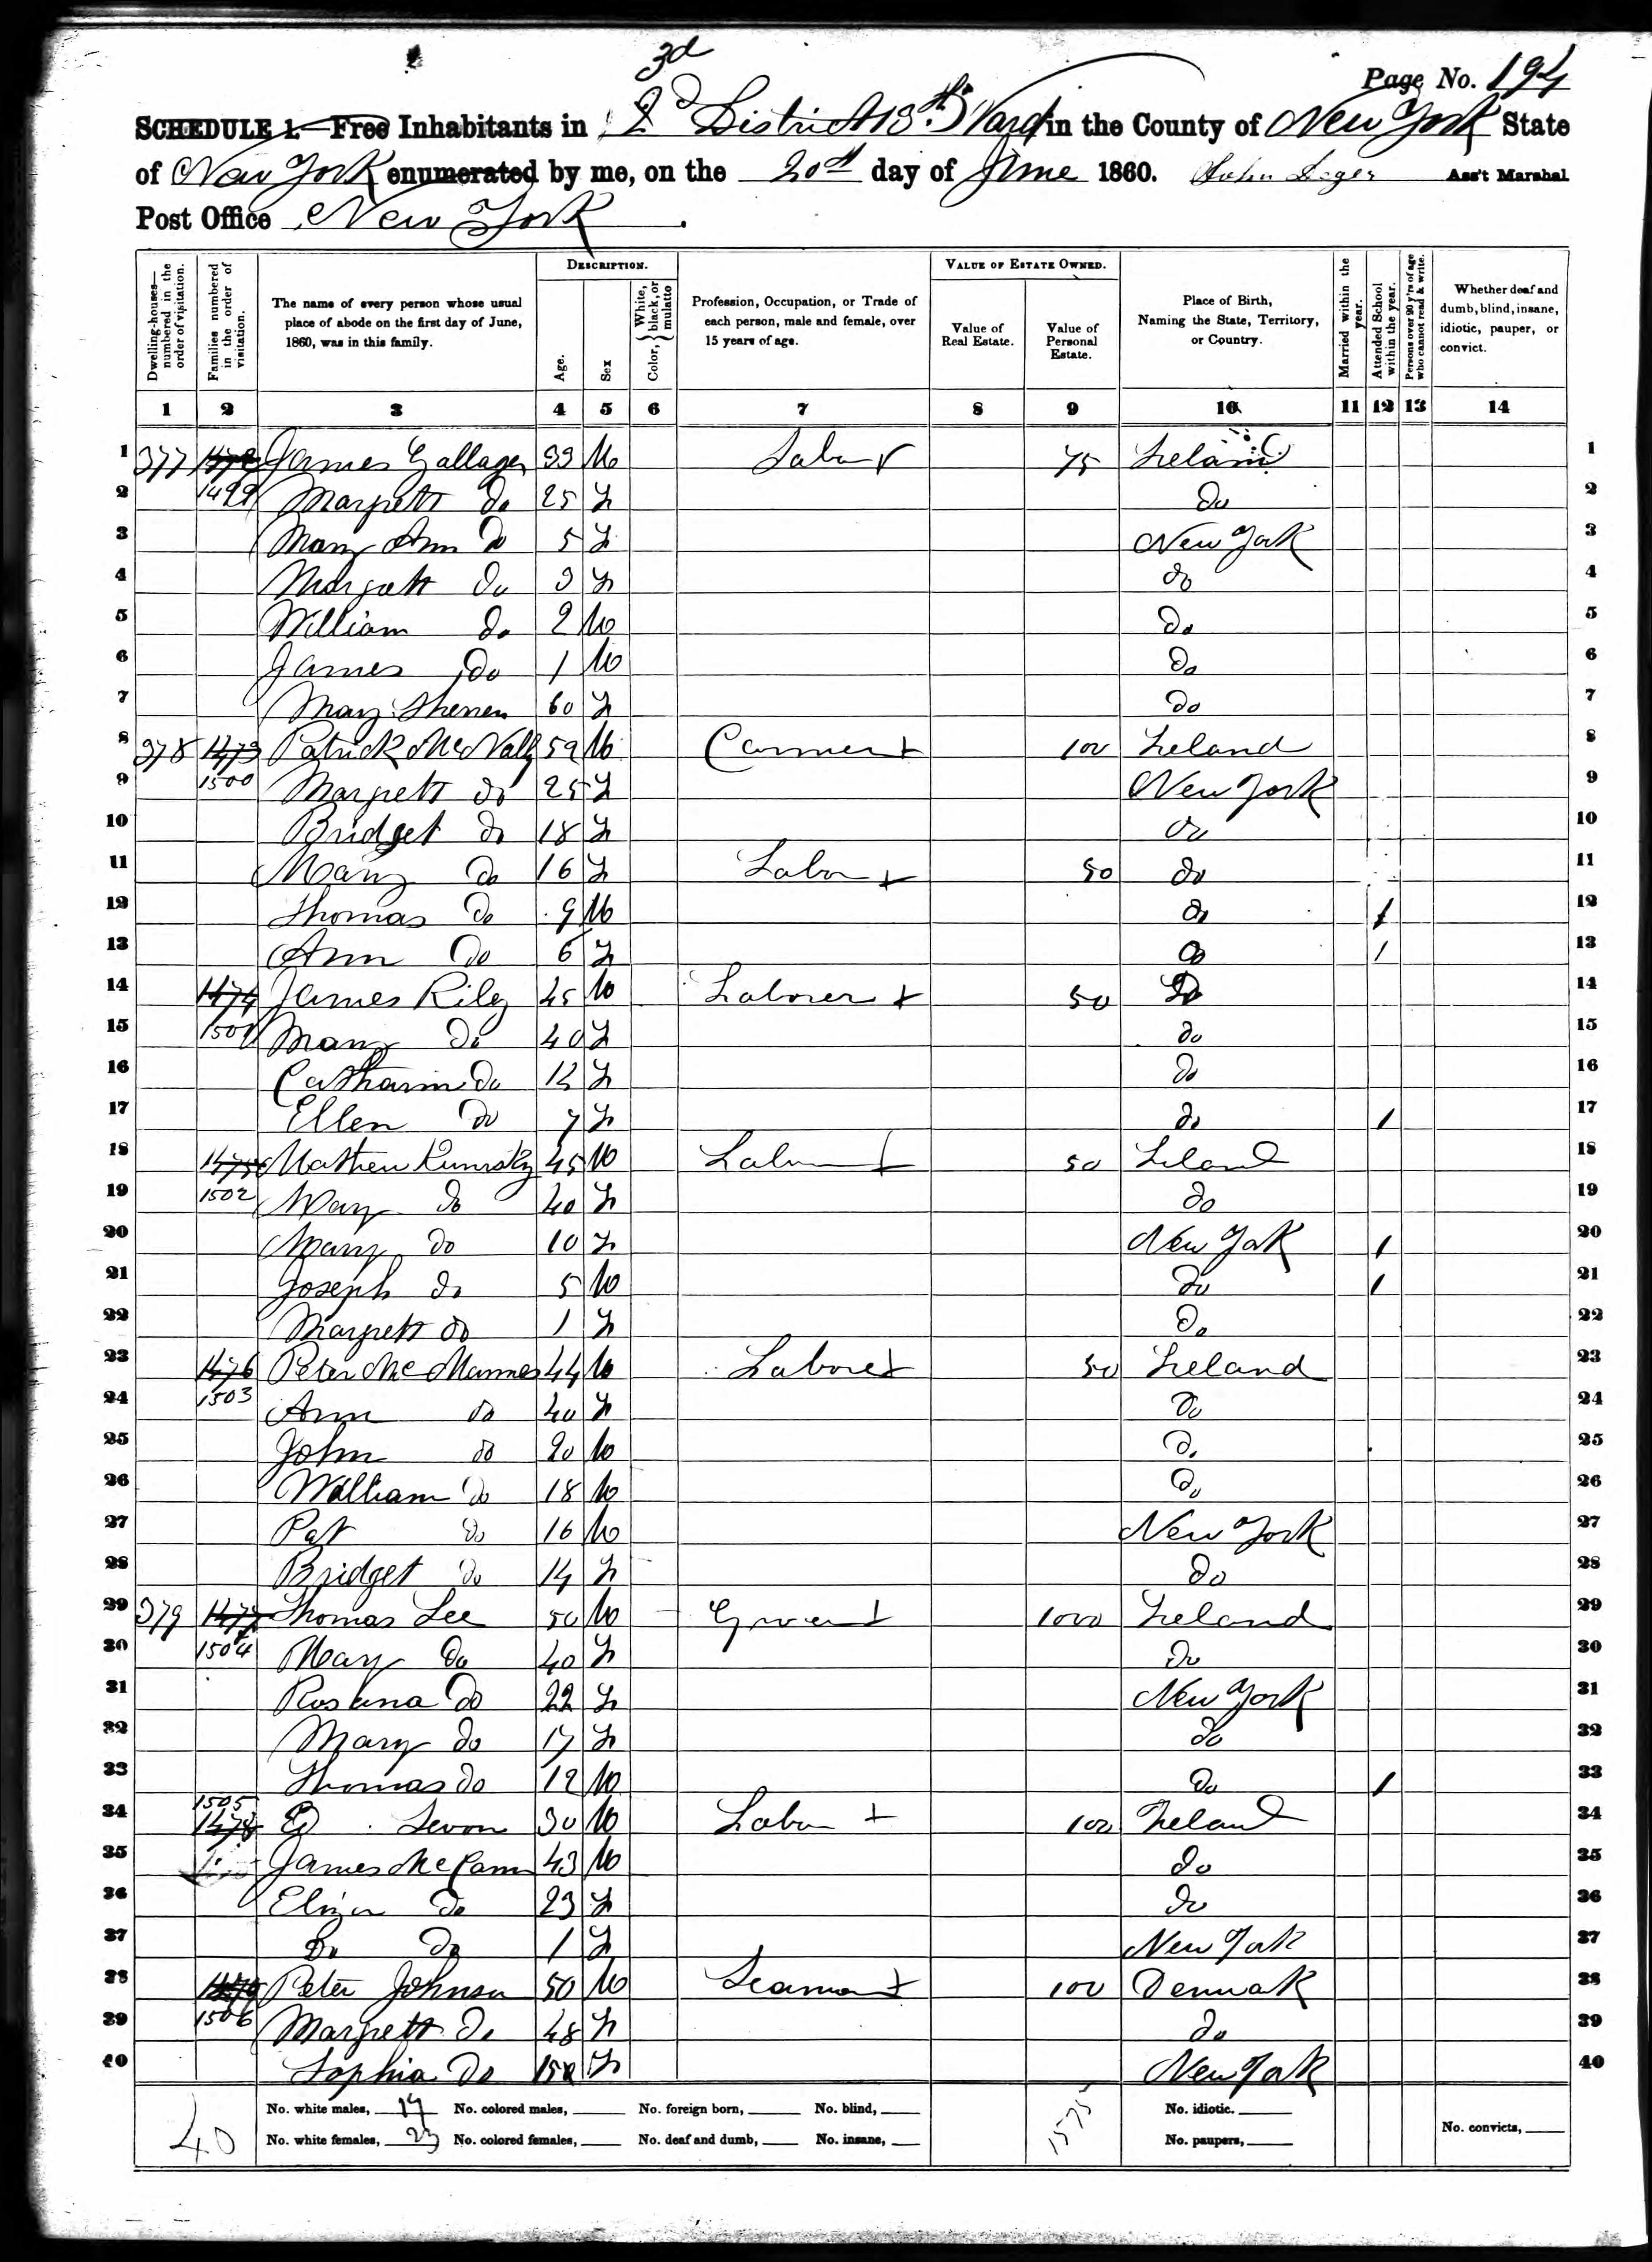 3d
Page No. 194
SCHEDULE 1.—Free Inhabitants in 2d District 13th Ward in the County of New York State
of New York enumerated by me, on the 20th day of June 1860. John Ass't Marshal
Post Office New York.
Dwelling-houses—numbered in the order of visitation.
Families numbered in the order of visitation.
The name of every person whose usual place of abode on the first day of June, 1860, was in this family.
DESCRIPTION.
Age.
Sex
Color, { White, black, or mulatto
Profession, Occupation, or Trade of each person, male and female, over 15 years of age.
VALUE OF ESTATE OWNED.
Value of Real Estate.
Value of Personal Estate.
Place of Birth, Naming the State, Territory, or Country.
Married within the year.
Attended School within the year.
Persons over 20 y'rs of age who cannot read & write.
Whether deaf and dumb, blind, insane, idiotic, pauper, or convict.
1 2 3 4 5 6 7 8 9 10 11 12 13 14
1 377 1472 James Gallager 33 M Labor 75 Ireland 1
2 1499 Margrett Do 25 F Do 2
3 Mary Ann Do 5 F New York 3
4 Margrett Do 3 F do 4
5 William Do 2 M Do 5
6 James Do 1 M Do 6
7 Mary 60 F Do 7
8 378 1473 Patrick McNally 59 M Carmen 100 Ireland 8
9 1500 Margrett do 25 F New York 9
10 Bridget do 18 F do 10
11 Mary Do 16 F Labor 50 do 11
12 Thomas Do 9 M do / 12
13 Ann Do 6 F do / 13
14 1474 James Riley 45 M Laborer 50 Do 14
15 1501 Mary Do 40 F do 15
16 Catharin Do 12 F do 16
17 Ellen Do 7 F do / 17
18 1475 Mathew 45 M Labor 50 Ireland 18
19 1502 Mary Do 40 F do 19
20 Mary do 10 F New York / 20
21 Joseph do 5 M do / 21
22 Margrett do 1 F Do 22
23 1476 Peter McMannes 44 M Laborer 50 Ireland 23
24 1503 Ann do 40 F Do 24
25 John do 20 M Do 25
26 William do 18 M Do 26
27 Pat do 16 M New York 27
28 Bridget do 14 F Do 28
29 379 1477 Thomas Lee 50 M 1000 Ireland 29
30 1504 Mary Do 40 F Do 30
31 Rosana Do 22 F New York 31
32 Mary do 17 F do 32
33 Thomas do 12 M Do / 33
1505
34 1478 Ed 30 M Labor 100 Ireland 34
35 James McCann 43 M do 35
36 Eliza Do 23 F do 36
37 Do Do 1 F New York 37
38 1479 Peter Johnson 50 M Seaman 100 Denmark 38
39 1506 Margrett Do 48 F do 39
40 Sophia Do F New York 40
40
No. white males, 17 No. colored males, No. foreign born, No. blind, 1575 No. idiotic.
No. white females, 23 No. colored females, No. deaf and dumb, No. insane, No. paupers, No. convicts,